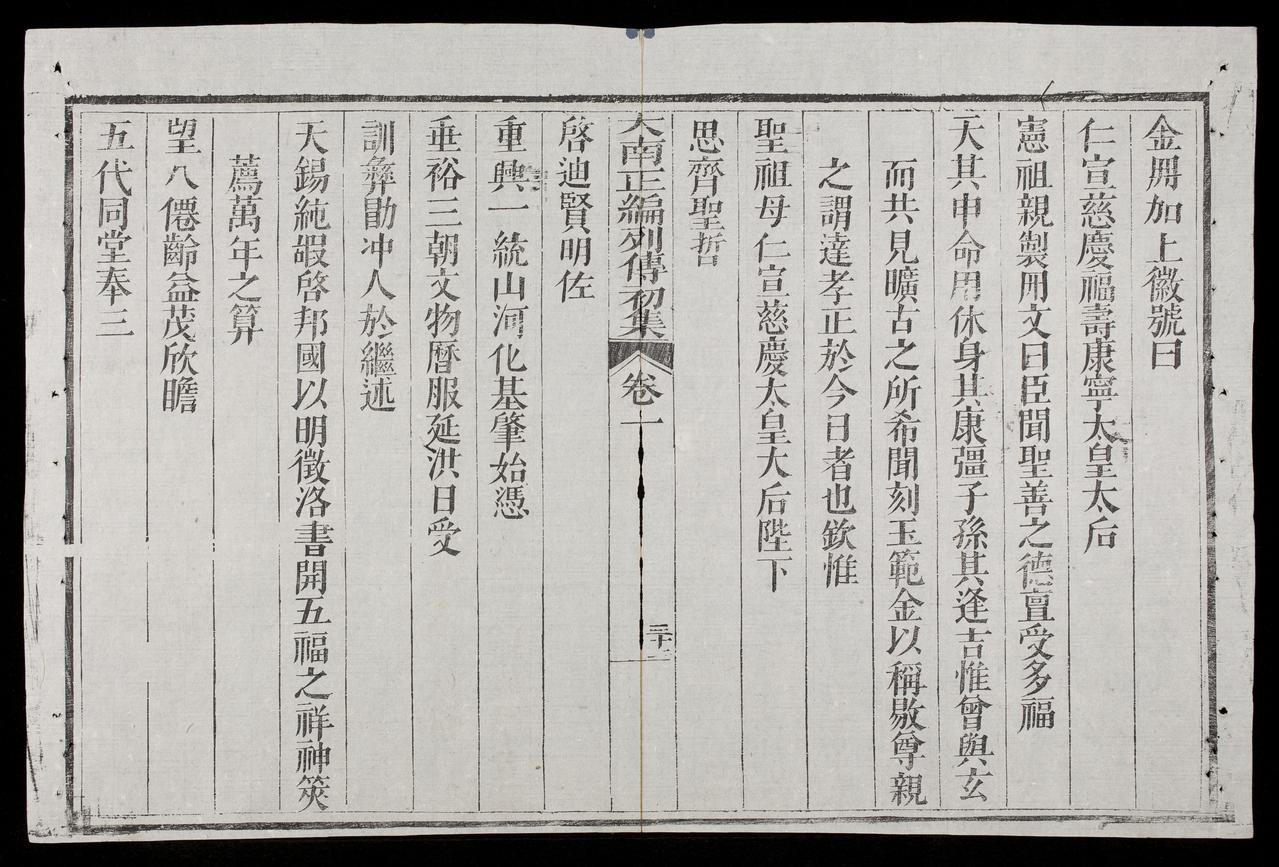 金冊加上徽號曰
仁宣慈慶福壽康寧太皇太后
憲祖親製冊文曰臣聞聖善之德亶受多福
天其申命用休身其康彊子孫其逢吉惟曾與玄
而共見曠古之所希聞刻玉範金以稱敭尊親
之謂達孝正於今日者也欽惟
聖祖母仁宣慈慶太皇太后陛下
思齊聖哲
大南正編列傳初集 卷一 三十二
啓迪賢明佐
重興一統山河化基肇始憑
垂裕三朝文物曆服延洪日受
訓彝勖冲人於繼述
天錫純嘏啓邦國以明徵洛書開五福之祥神筴
薦萬年之算
望八僊齡益茂欣瞻
五代同堂奉三